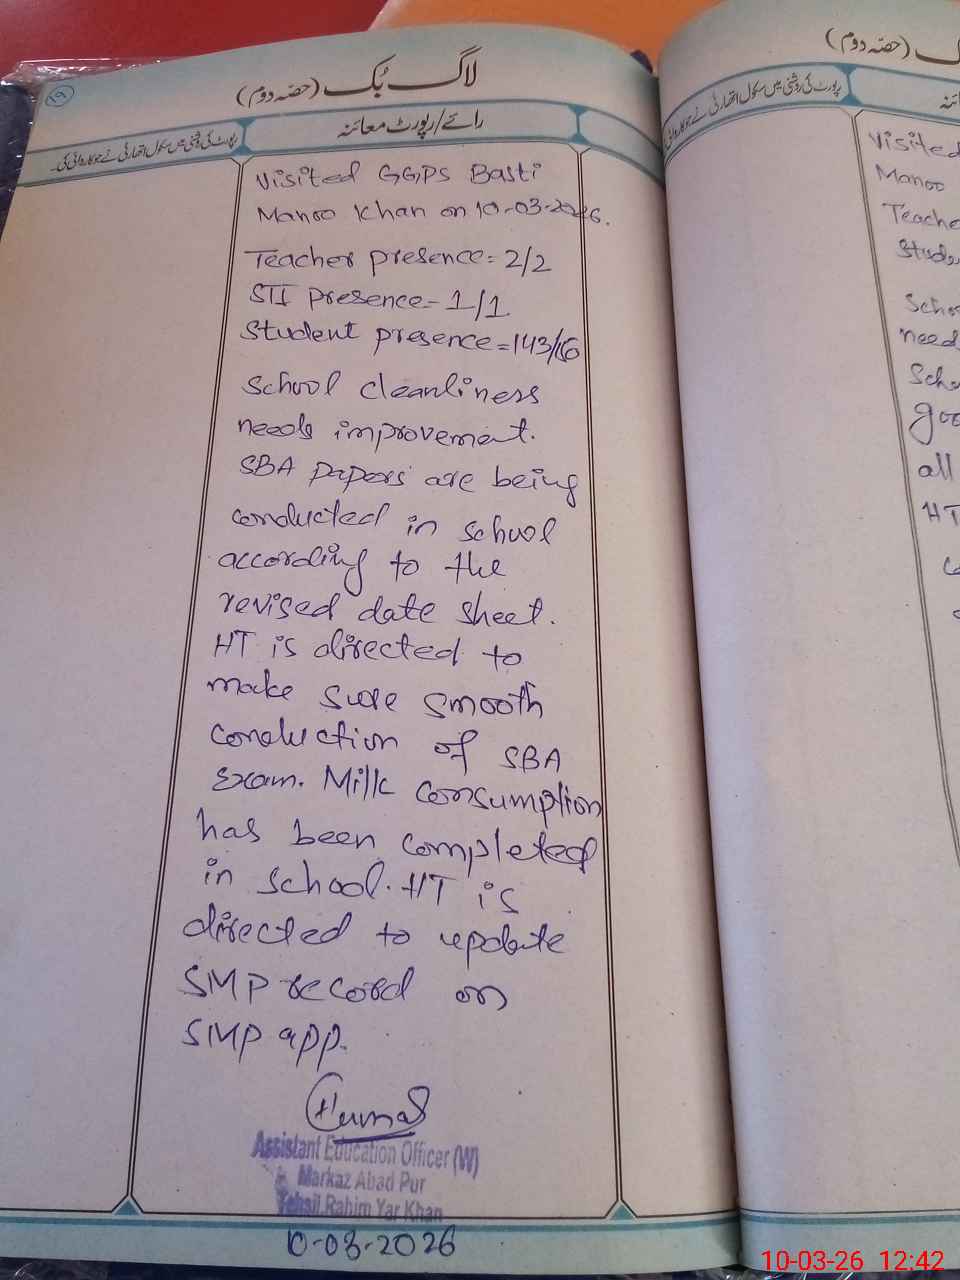 ۱۹
لاگ بُک (حصّہ دوم)
رائے/رپورٹ معائنہ
رپورٹ کی روشنی میں سکول اتھارٹی نے جو کاروائی کی۔
Visited GGPS Basti
Manoo Khan on 10-03-2026.
Teacher presence = 2/2
STI presence - 1/1
Student presence = 143/
School cleanliness
needs improvement.
SBA papers are being
conducted in school
according to the
revised date sheet.
HT is directed to
make sure smooth
conduction of SBA
Exam. Milk consumption
has been completed
in school. HT is
directed to update
SMP record on
SMP app.
Assistant Education Officer (W)
Markaz Abad Pur
Tehsil Rahim Yar Khan
10-03-2026
(حصّہ دوم)
رپورٹ کی روشنی میں سکول اتھارٹی نے جو کاروائی کی
Visited
Manoo
Teache
Stude
Schoo
need
Scho
goo
all
HT
10-03-26 12:42